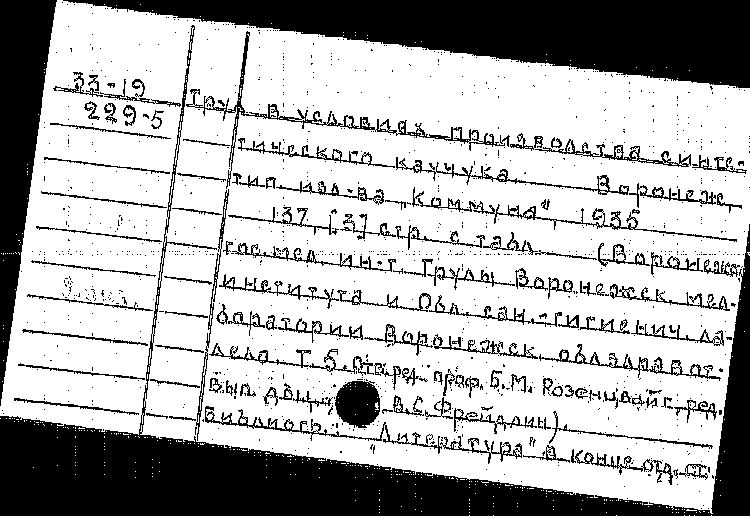 33-19
229-5
Труд в условиях производства синте-
тического каучука. Воронеж,
тип. изд-ва „Коммуна", 1935
137, [3] стр. с табл. (Воронежск.
гос. мед. ин-т. Труды Воронежск. мед.
института и Обл. сан.-гигиенич. ла-
боратории Воронежск. облздравот-
дела. Т. 5. Отв. ред. проф. Б. М. Розенцвайг, ред.
вып. доц. В. С. Фрейдлин).
Библиогр.: „Литература" в конце отд. ст.